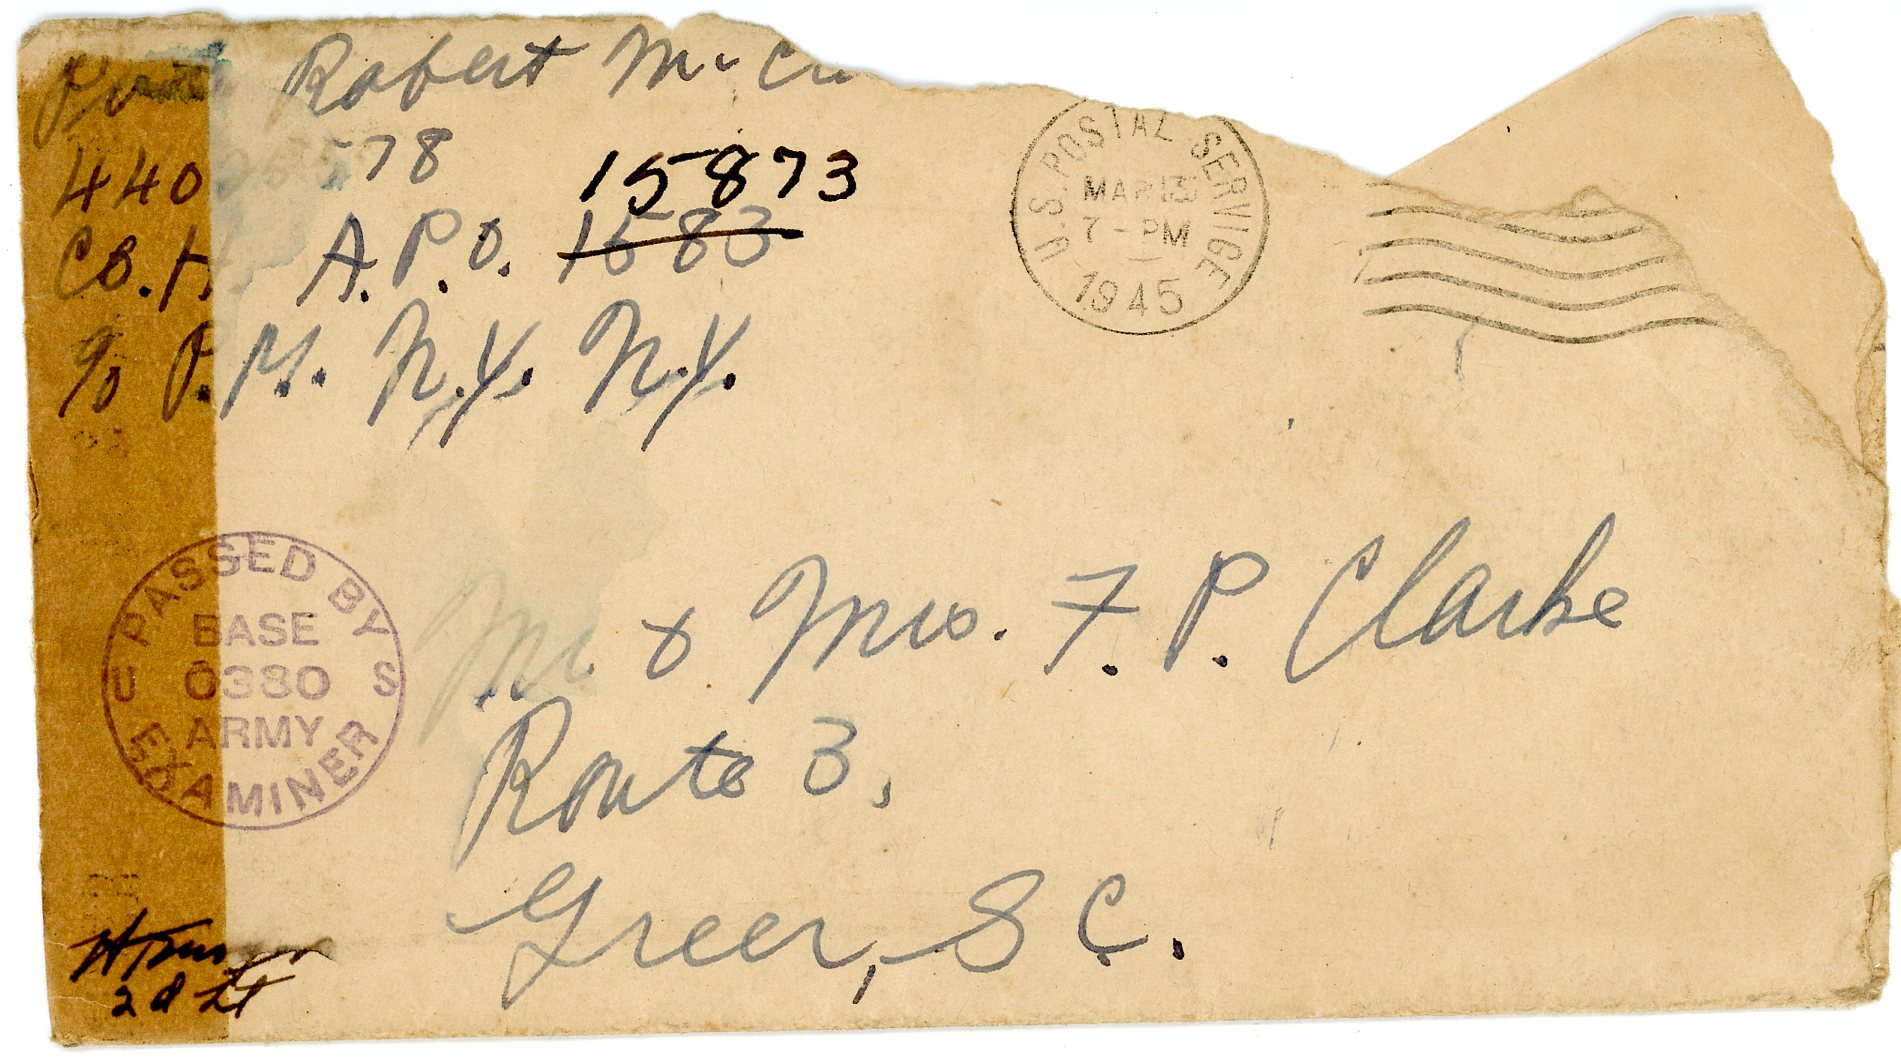 Robert Mc
440 78
15873
Co. H. A.P.O. 1583
c/o P.M. N.Y. N.Y.
U.S. POSTAL SERVICE
MAR 13
7 - PM
1945
PASSED BY
BASE
U 0380 S
ARMY
EXAMINER
Mr. & Mrs. F. P. Clarke
Route 3,
Greer, S C.
2d Lt